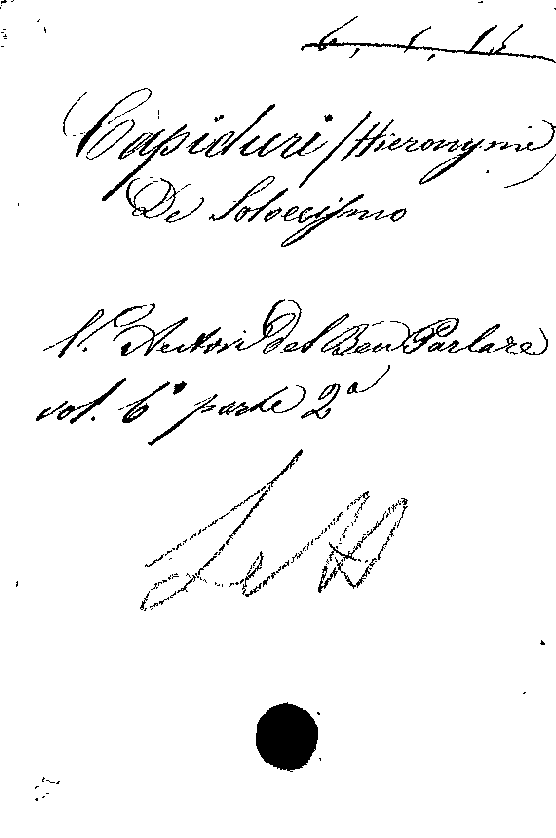 6, 1, 15
Capiduri (Hieronymi)
De Soloecismo
V. Autori Del Ben Parlare
vol. 6° parte 2ª